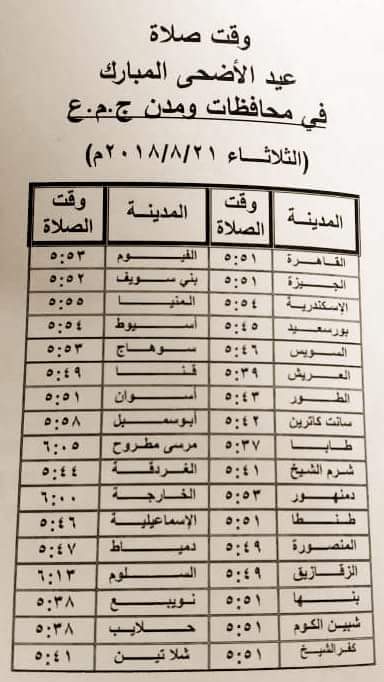 وقت صلاة
عيد الأضحى المبارك
في محافظات ومدن ج.م.ع
(الثلاثاء ٢٠١٨/٨/٢١م)
المدينة وقت الصلاة المدينة وقت الصلاة
القاهرة ٥:٥١ الفيوم ٥:٥٣
الجيزة ٥:٥١ بني سويف ٥:٥٢
الإسكندرية ٥:٥٤ المنيا ٥:٥٥
بورسعيد ٥:٤٥ أسيوط ٥:٥٤
السويس ٥:٤٦ سوهاج ٥:٥٣
العريش ٥:٣٩ قنا ٥:٤٩
الطور ٥:٤٣ أسوان ٥:٥١
سانت كاترين ٥:٤٢ أبوسمبل ٥:٥٨
طابا ٥:٣٧ مرسى مطروح ٦:٠٥
شرم الشيخ ٥:٤١ الغردقة ٥:٤٤
دمنهور ٥:٥٣ الخارجة ٦:٠٠
طنطا ٥:٥١ الإسماعيلية ٥:٤٦
المنصورة ٥:٤٩ دمياط ٥:٤٧
الزقازيق ٥:٤٩ السلوم ٦:١٣
بنها ٥:٥١ نويبع ٥:٣٨
شبين الكوم ٥:٥١ حلايب ٥:٣٨
كفرالشيخ ٥:٥١ شلاتين ٥:٤١